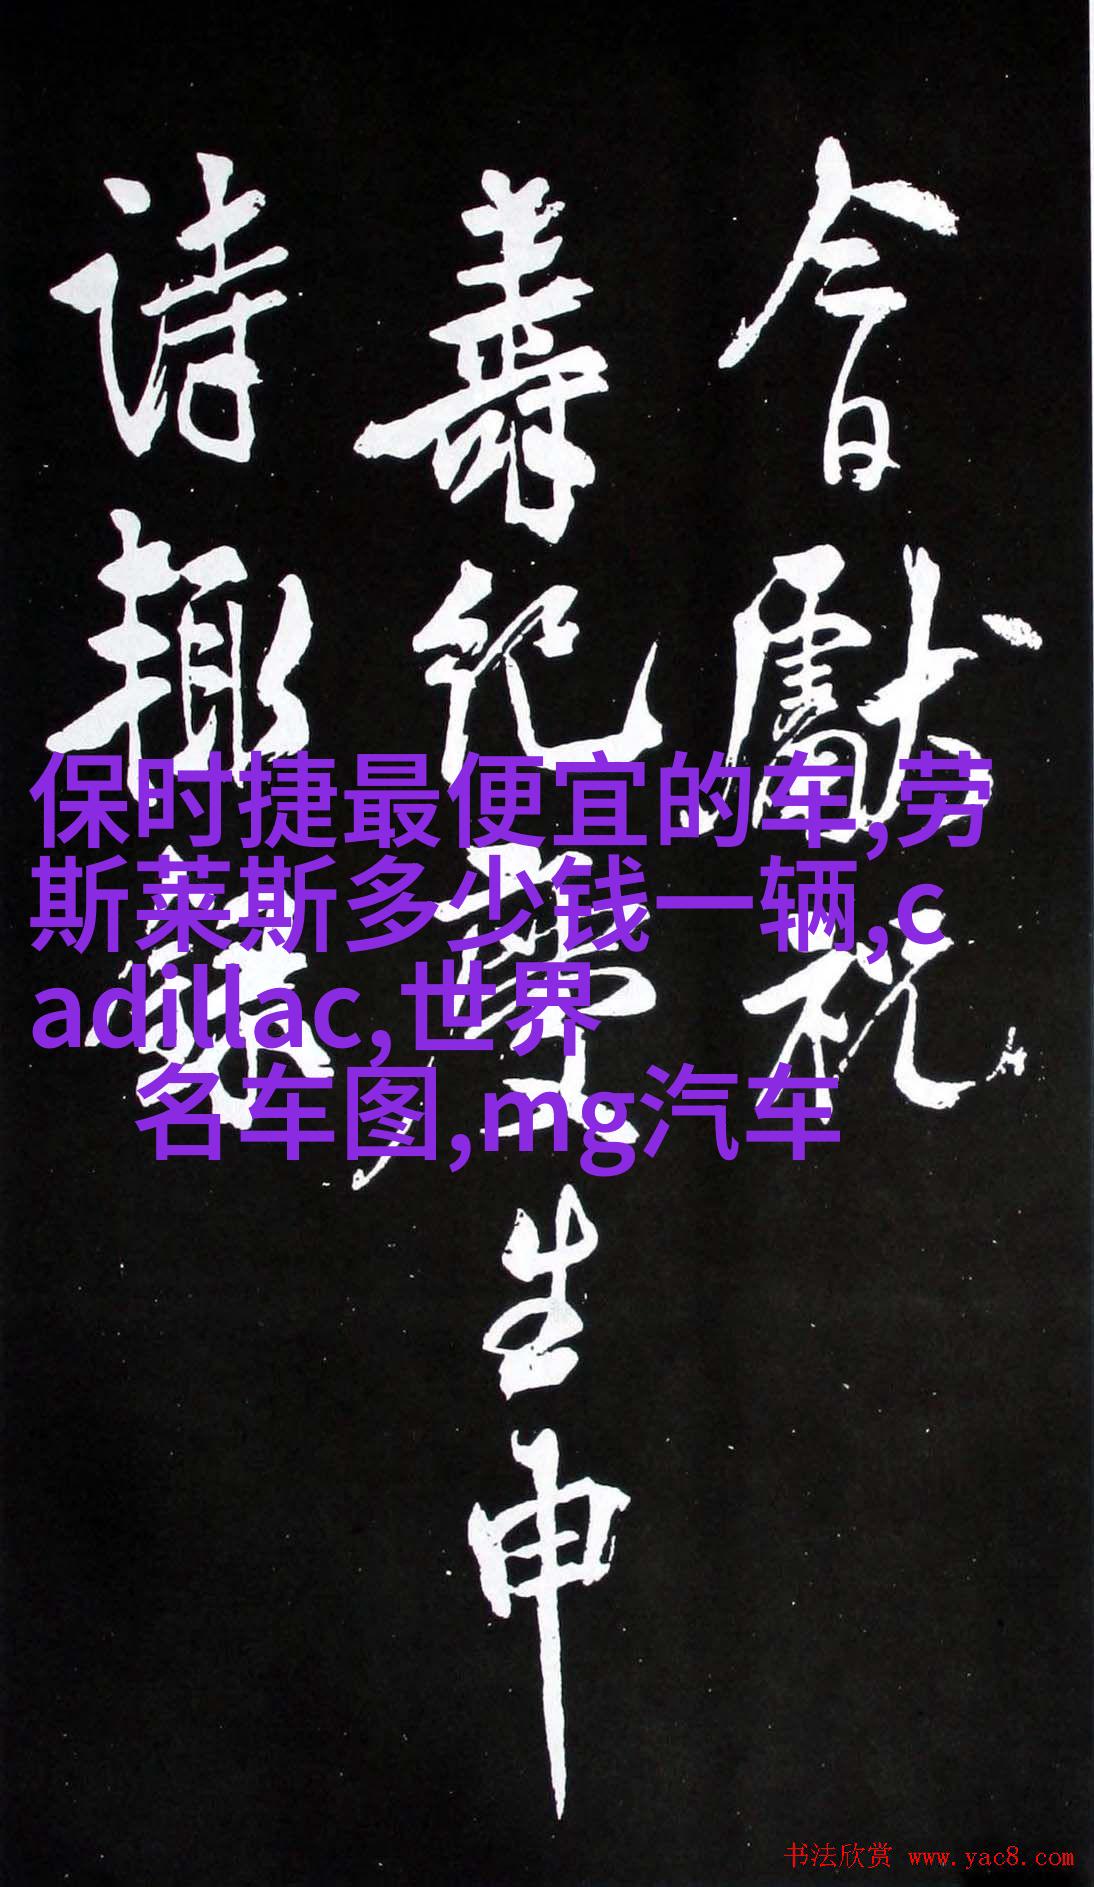 今日獻祝
壽紀生申
詩趣
保时捷最便宜的车,劳
斯莱斯多少钱一辆,c
adillac,世界
名车图,mg汽车
书法欣赏 www.yac8.com